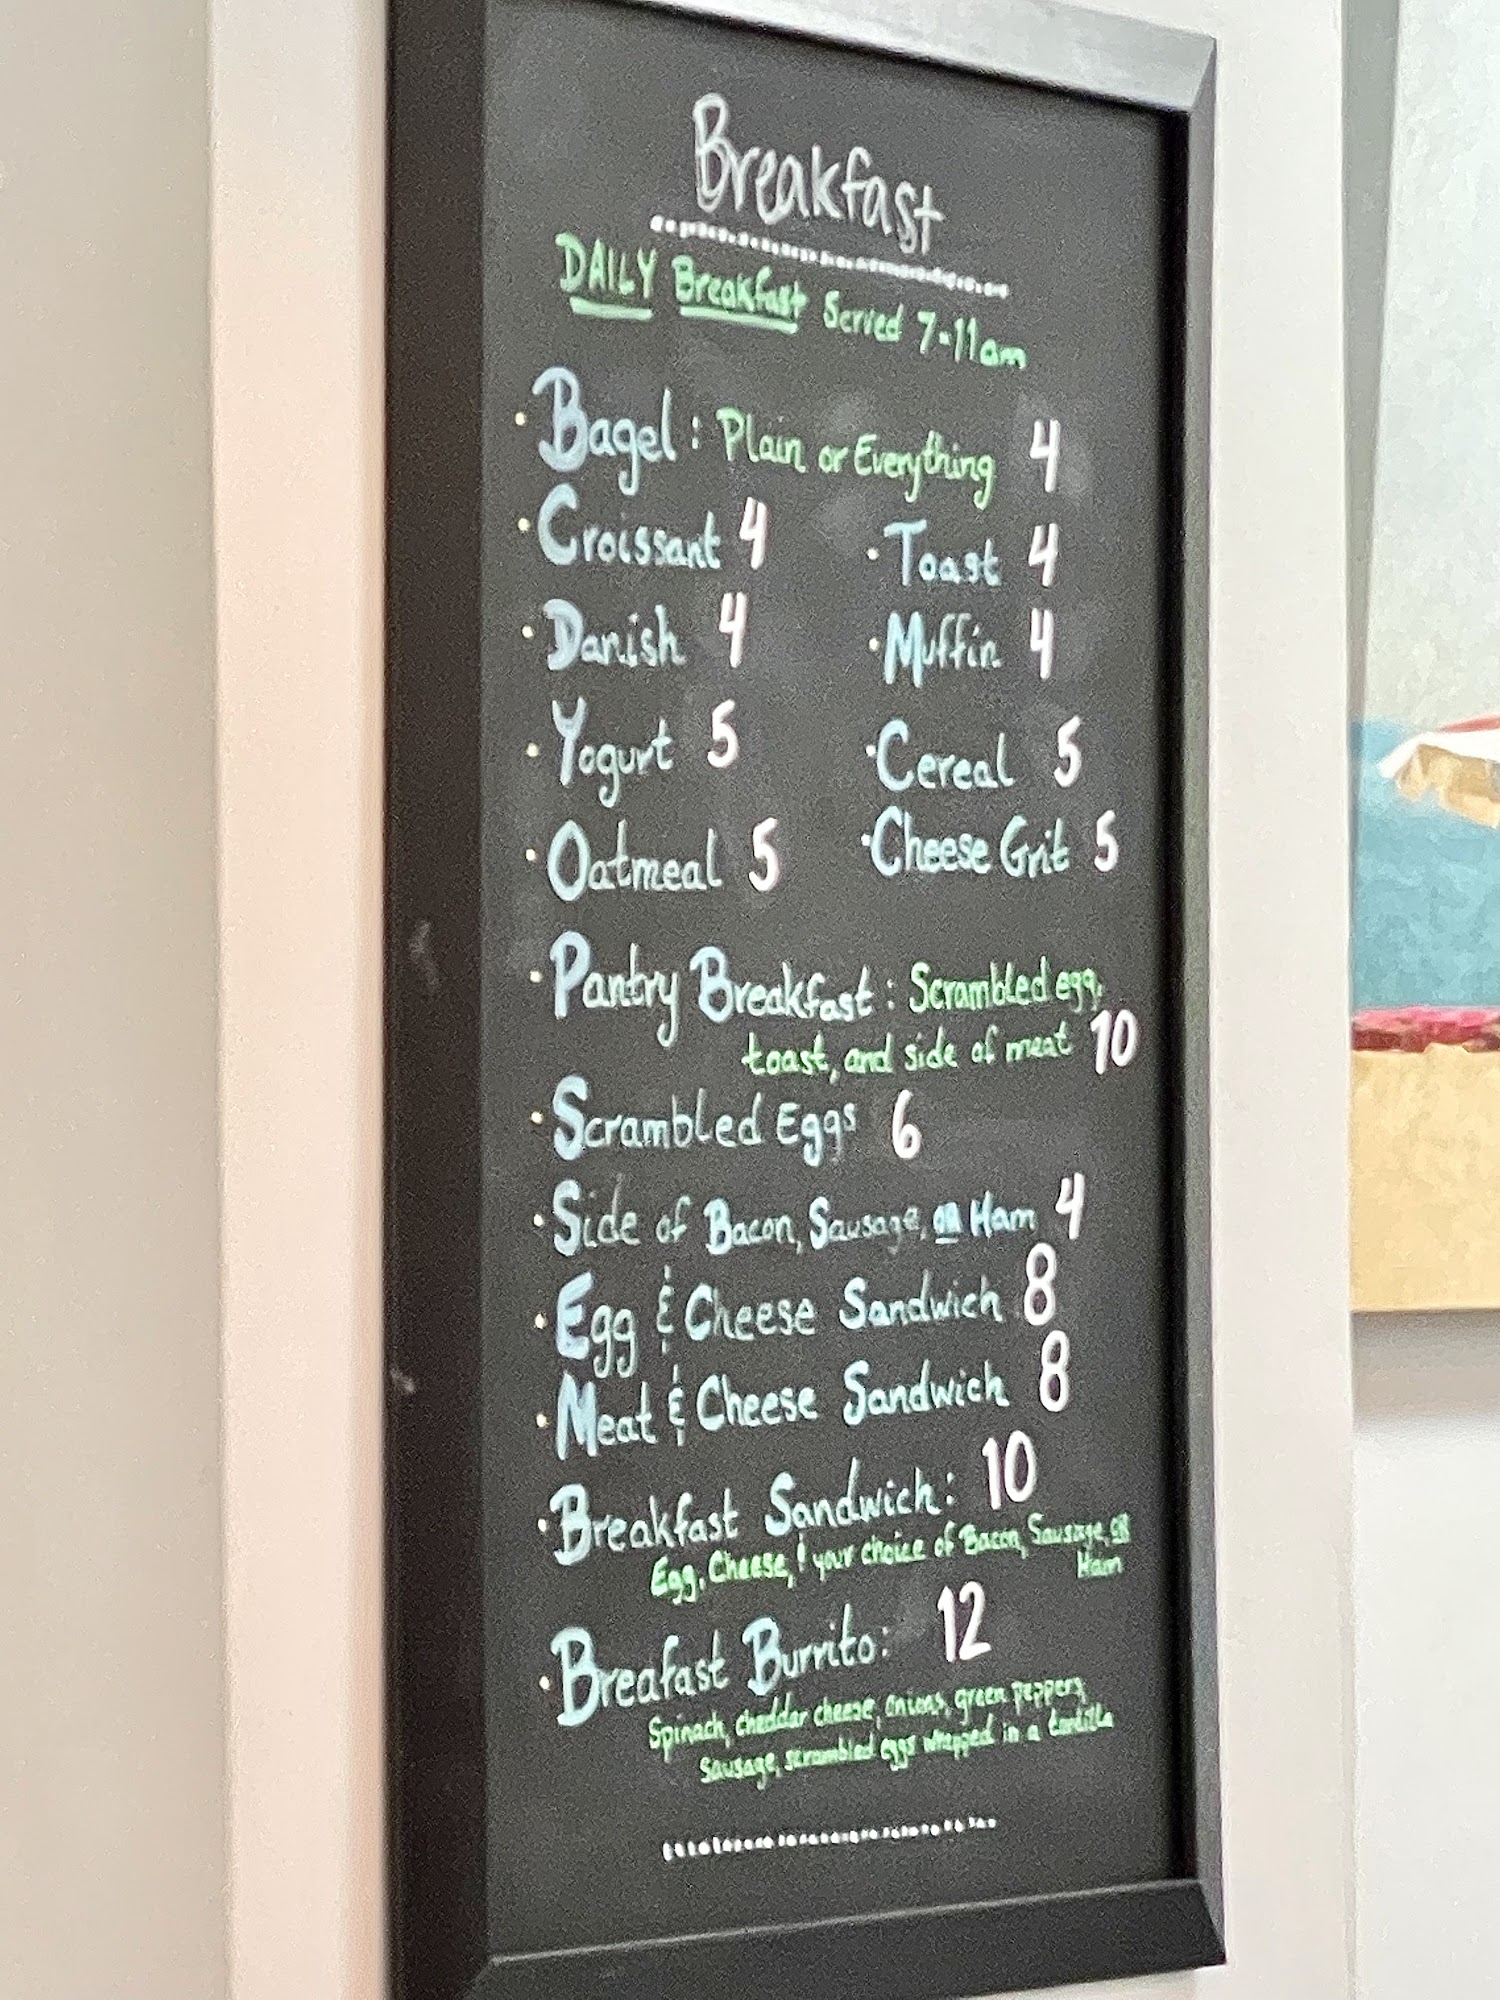 Breakfast
DAILY Breakfast Served 7-11am
· Bagel: Plain or Everything 4
· Croissant 4 · Toast 4
· Danish 4 · Muffin 4
· Yogurt 5 · Cereal 5
· Oatmeal 5 · Cheese Grit 5
· Pantry Breakfast: Scrambled egg,
toast, and side of meat 10
· Scrambled Eggs 6
· Side of Bacon, Sausage, OR Ham 4
· Egg & Cheese Sandwich 8
· Meat & Cheese Sandwich 8
· Breakfast Sandwich: 10
Egg, Cheese, & your choice of Bacon, Sausage, OR
Ham
· Breafast Burrito: 12
Spinach, cheddar cheese, onions, green peppers,
Sausage, scrambled eggs wrapped in a tortilla